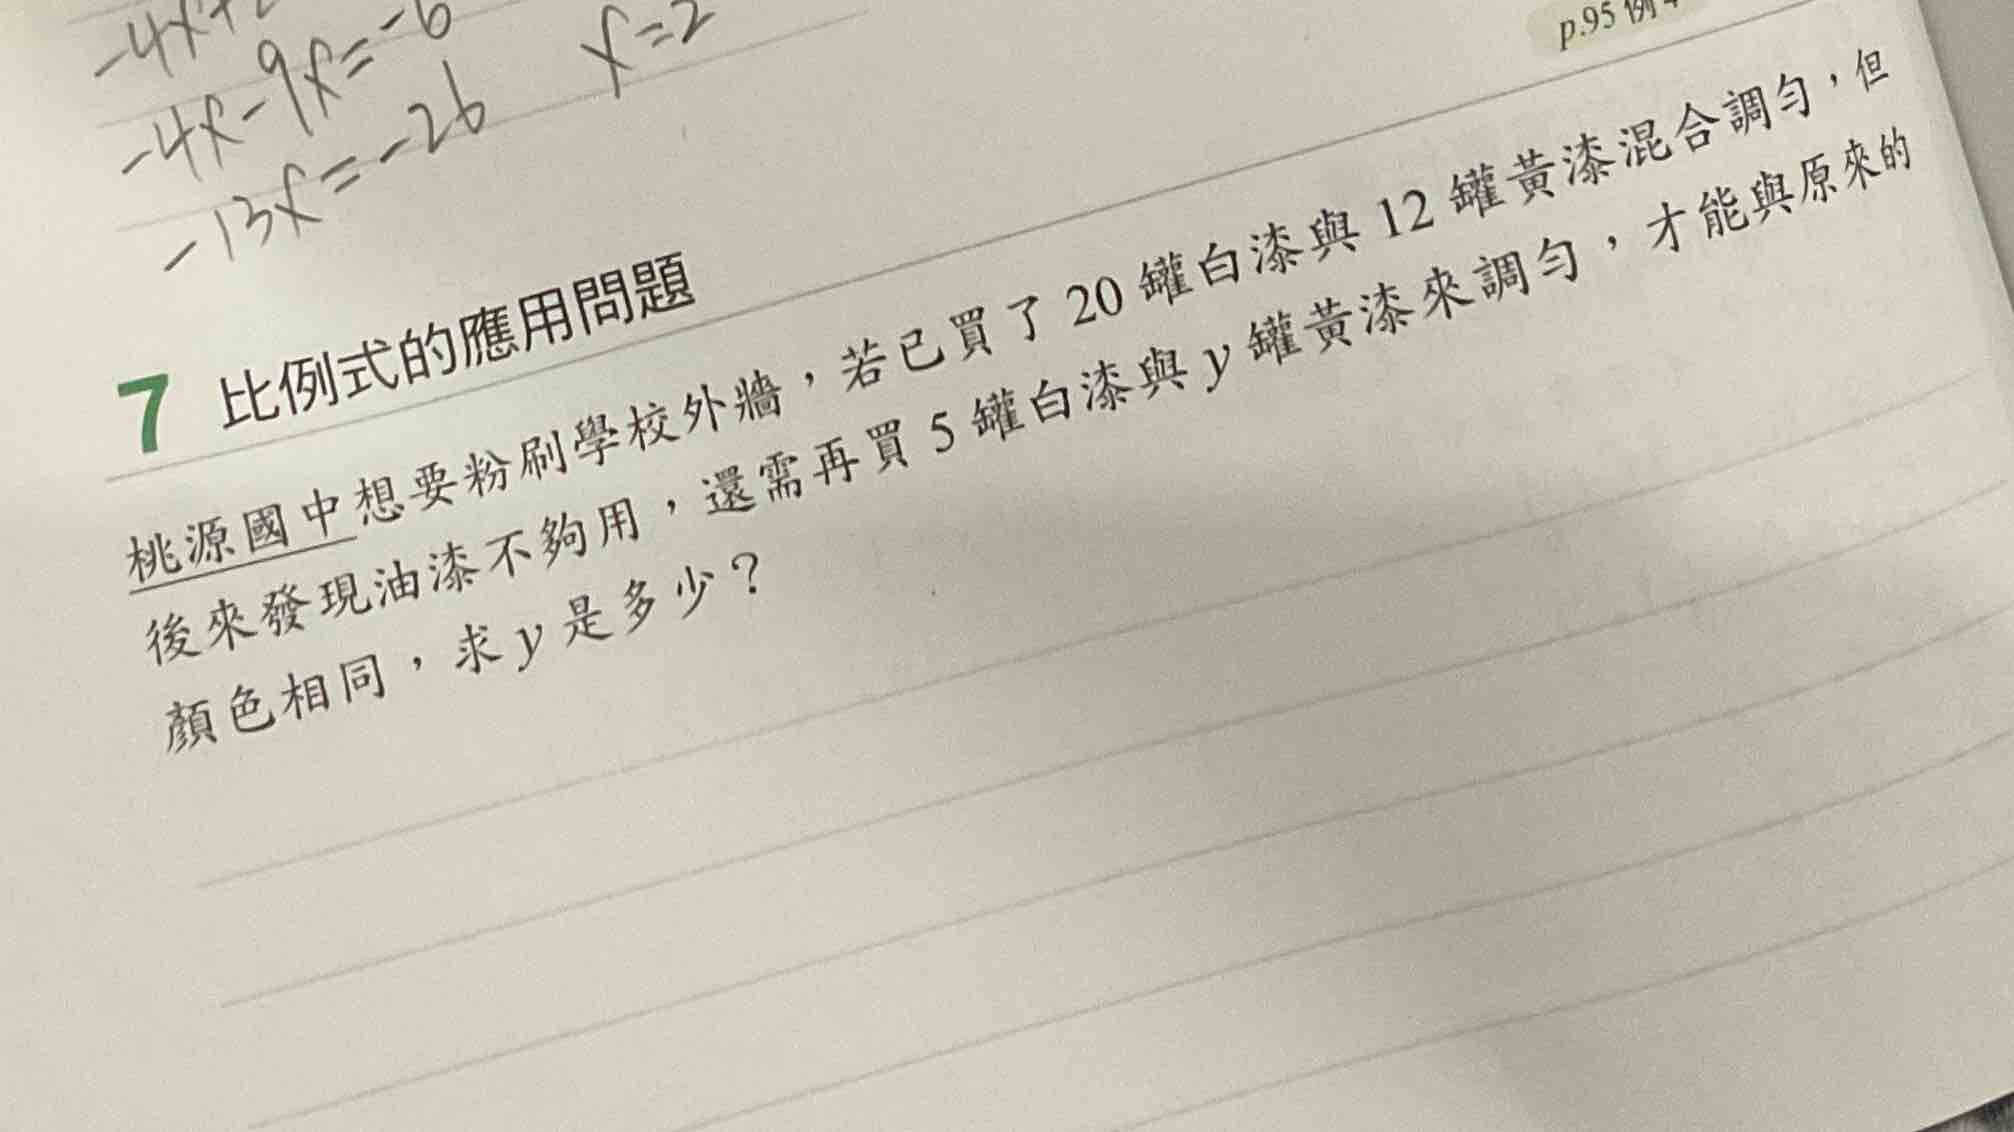 -4x+
-4x-9x=-6
-13x=-26 x=2
p.95 例
7 比例式的應用問題
桃源國中想要粉刷學校外牆，若已買了 20 罐白漆與 12 罐黃漆混合調勻，但
後來發現油漆不夠用，還需再買 5 罐白漆與 y 罐黃漆來調勻，才能與原來的
顏色相同，求 y 是多少？